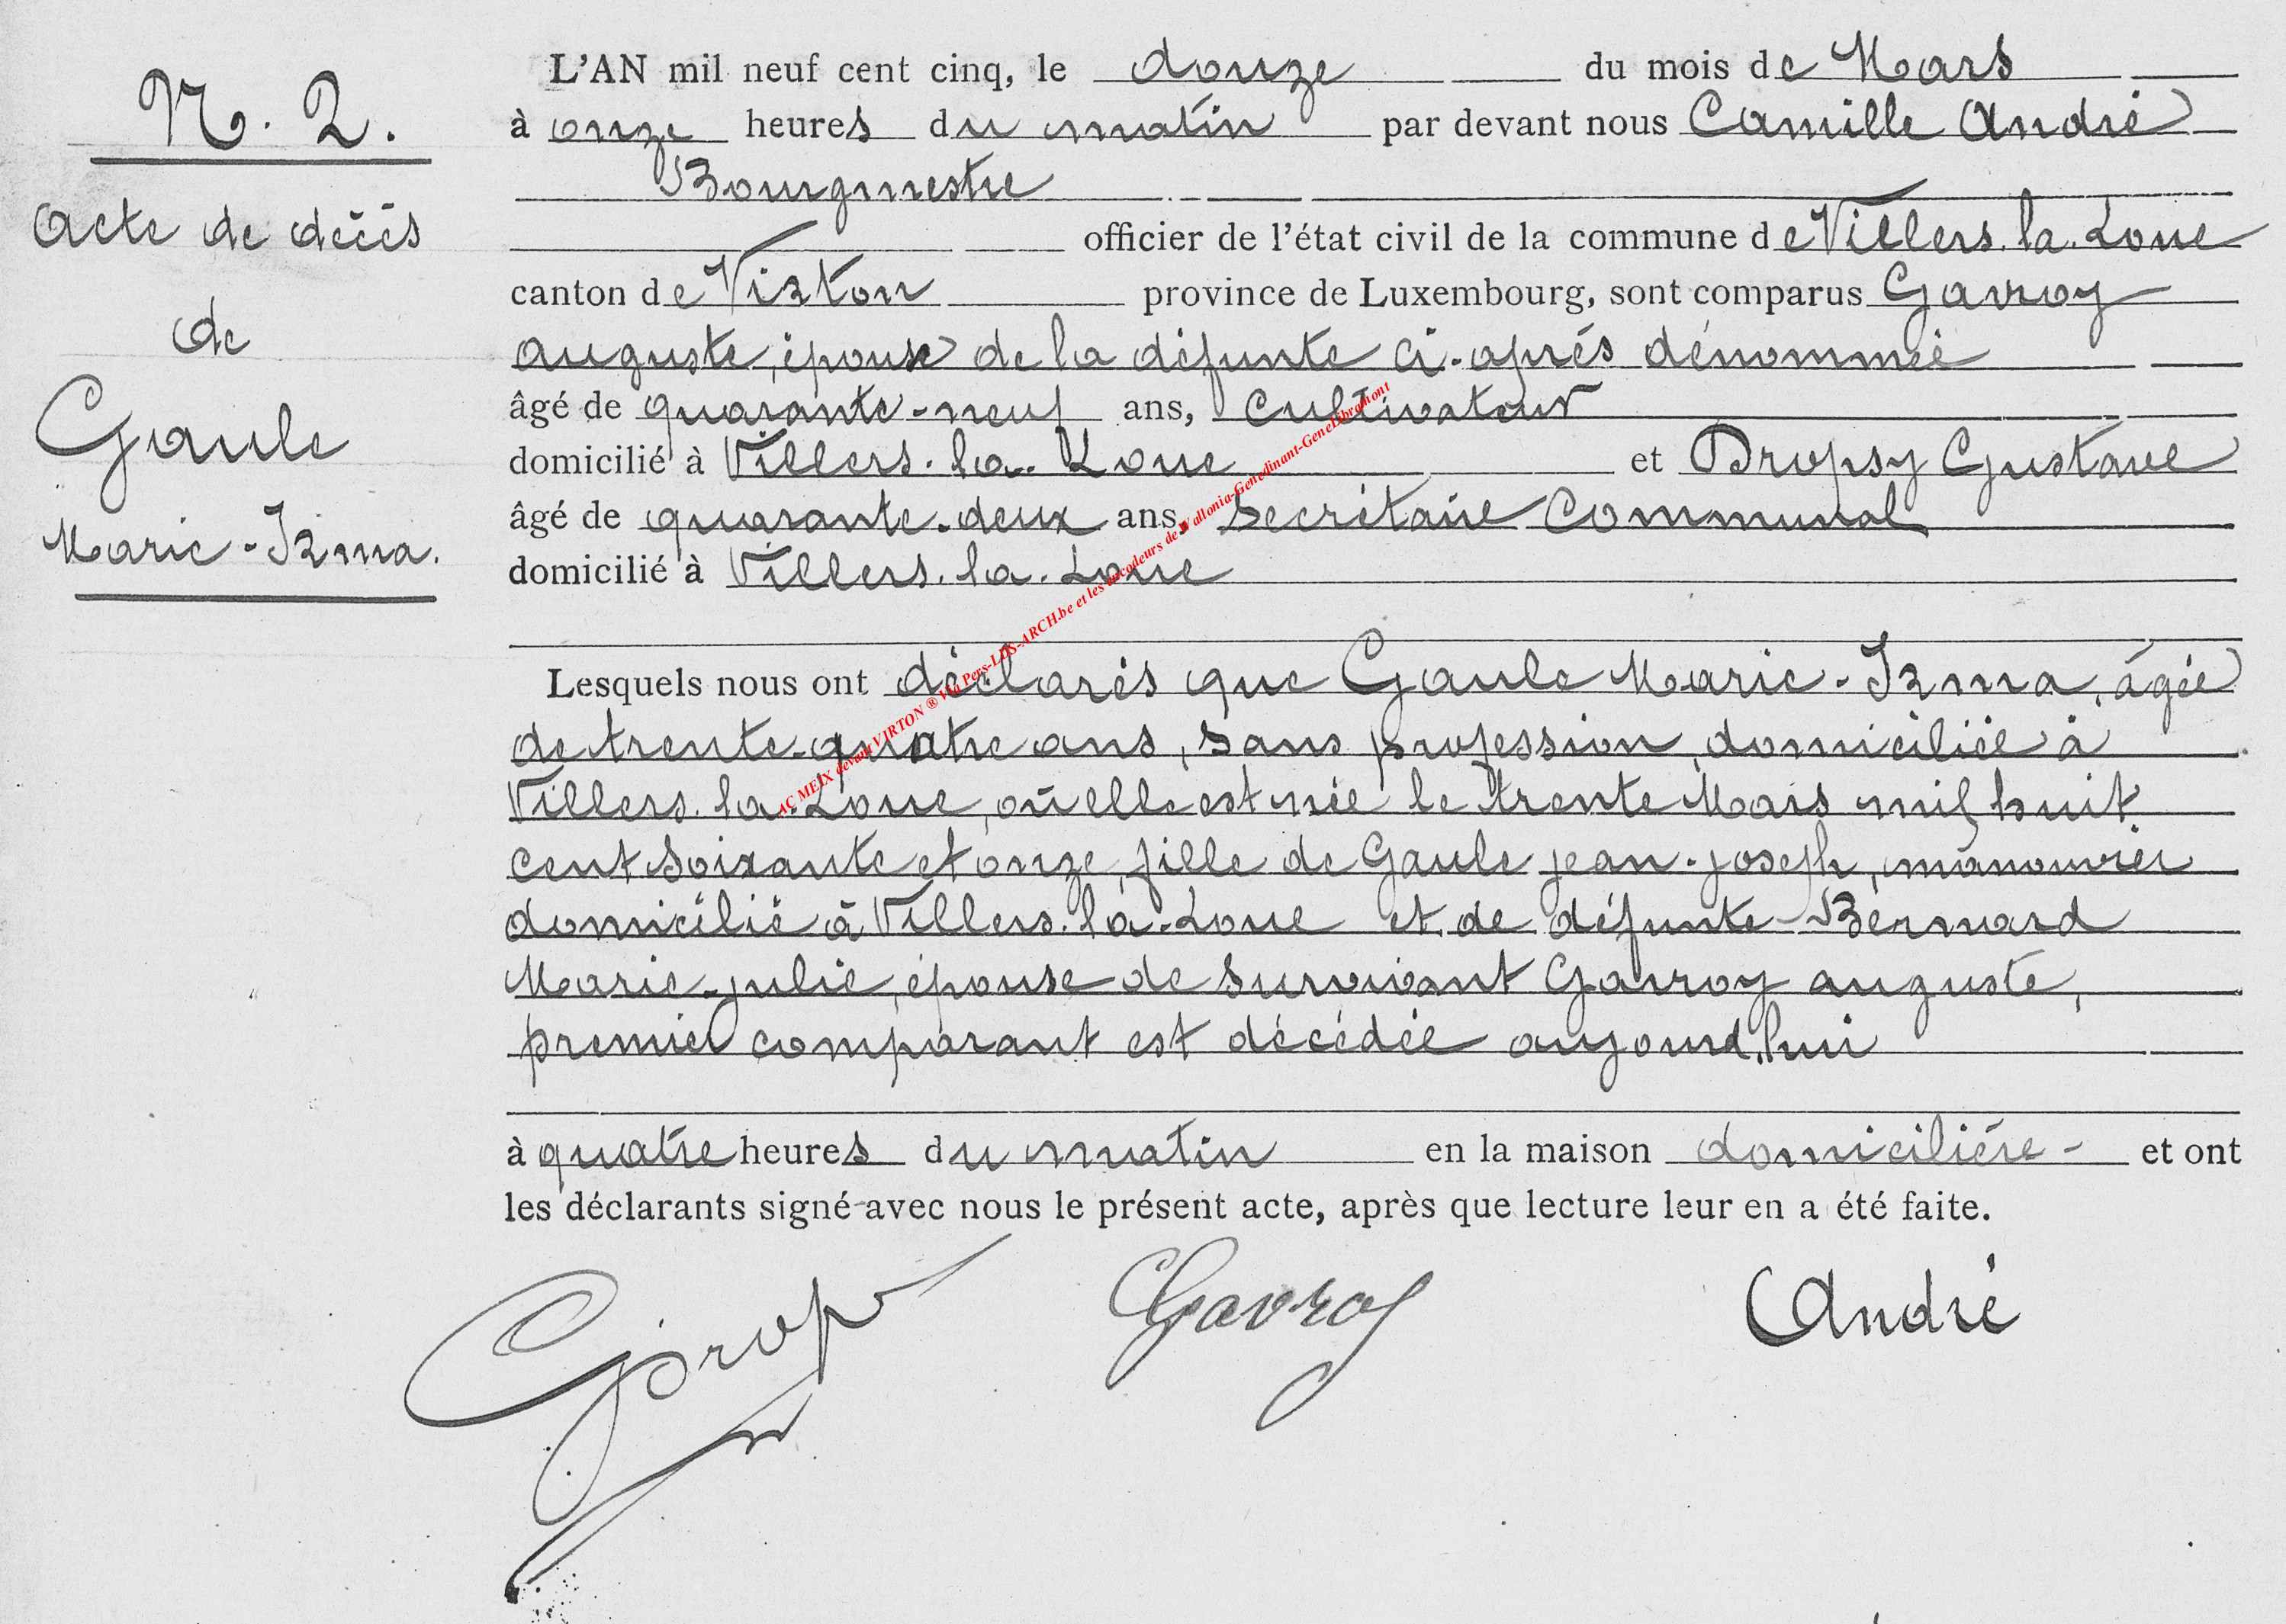 N. 2.
Acte de décès
de
Gaule
Marie-Irma.
L'AN mil neuf cent cinq, le douze du mois de Mars
à onze heures du matin par devant nous Camille André
Bourgmestre
officier de l'état civil de la commune de Villers-la-Loue
canton de Virton province de Luxembourg, sont comparus Gavroy
Auguste, épouse de la défunte ci-après dénommée
âgé de quarante-neuf ans, Cultivateur
domicilié à Villers-la-Loue et Dropsy Gustave
âgé de quarante-deux ans, Secrétaire Communal
domicilié à Villers-la-Loue
Lesquels nous ont déclarés que Gaule Marie-Irma, âgée
de trente-quatre ans, sans profession, domiciliée à
Villers-la-Loue, où elle est née le trente Mars mil huit
cent soixante et onze, fille de Gaule Jean-Joseph, manouvrier
domicilié à Villers-la-Loue et de défunte Bernard
Marie-Julie, épouse de survivant Gavroy Auguste,
premier comparant est décédée aujourd'hui
à quatre heures du matin en la maison domicilière - et ont
les déclarants signé avec nous le présent acte, après que lecture leur en a été faite.
GDropsy Gavroy André
AC MEIX devant VIRTON ® Via Pers-LDS-ARCH.be et les encodeurs de Wallonia-Genedinant-GeneLibramont